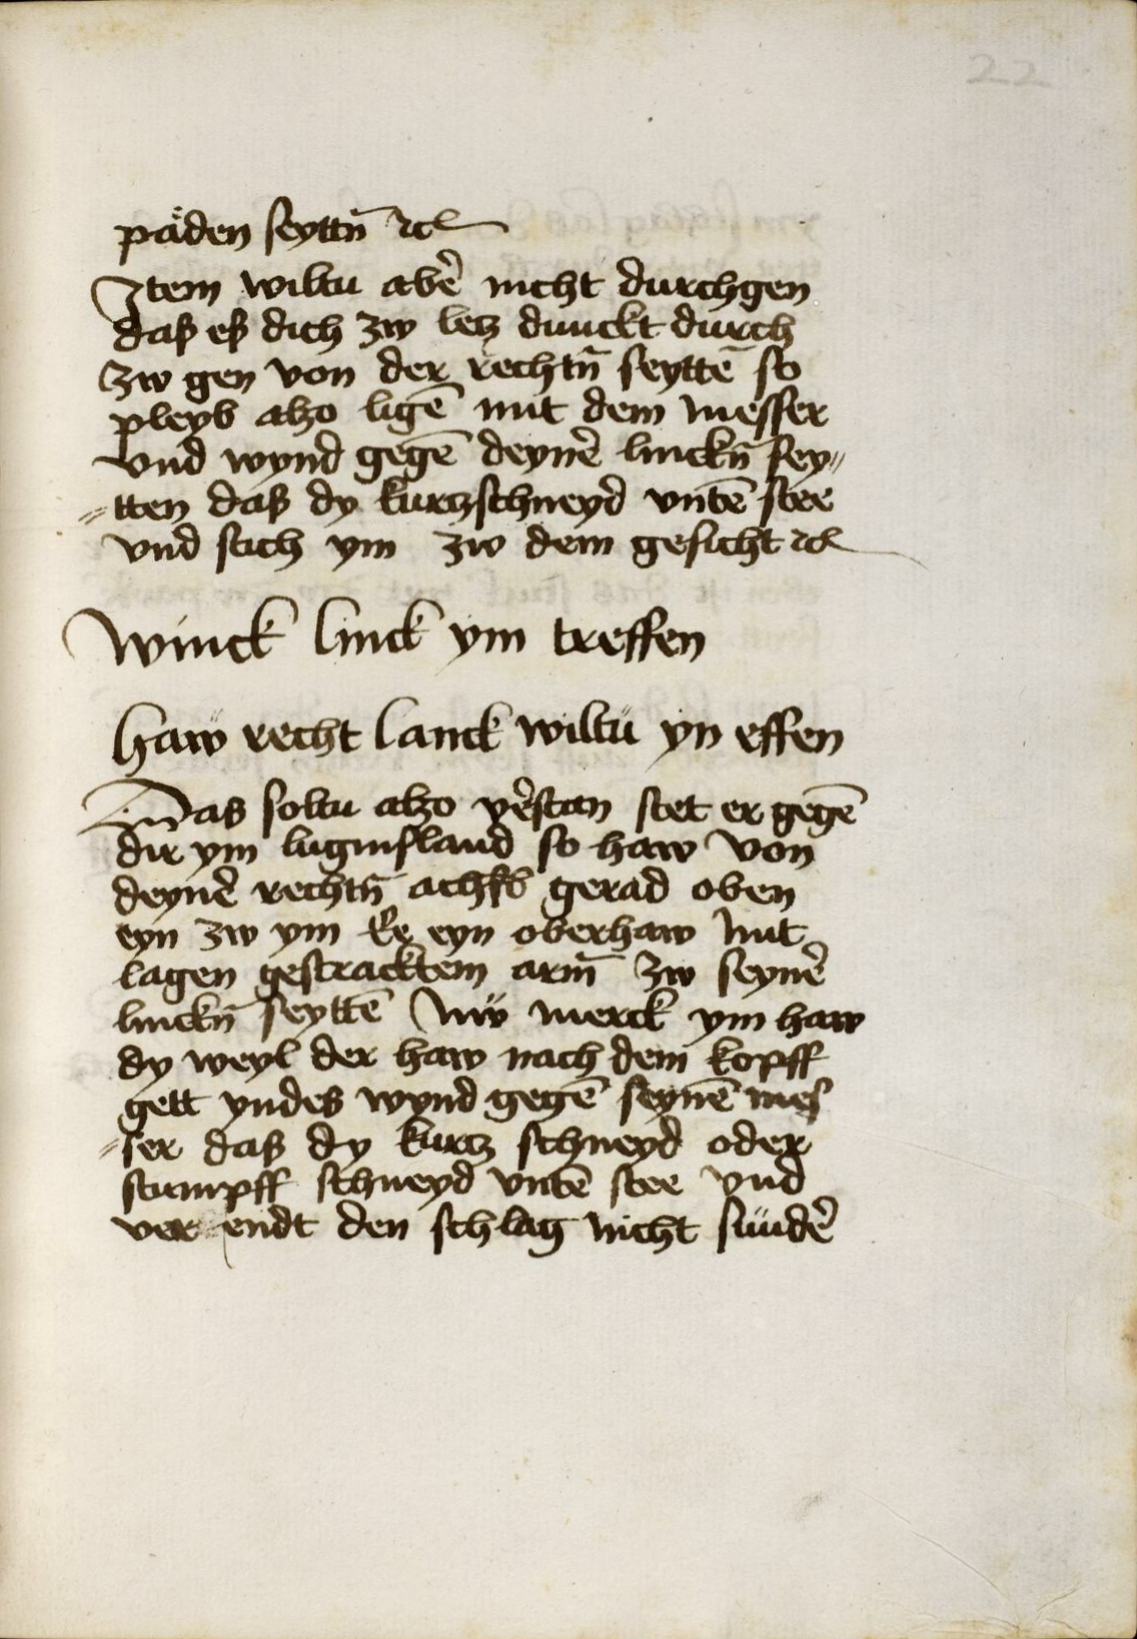 22
päden seyttn̄ ⁊c
Jtem wiltu abe᷑ nicht durchgen
daß eß dich zw letz dunckt durch
zw gen von der rechtn̄ seyttē so
pleyb alzo ligē mit dem messer
vnd wynd gegē deyne᷑ linckn̄ sey〃
〃tten daß dy kurczschneyd vntē stee
vnd stich ym zw dem gesicht ⁊c
Winck linck ym treffen
haw recht lanck wiltu yn effen
Das soltu alzo ve᷑stan stet er gegē
dir ym luginsland so haw von
deyne᷑ rechtn̄ achsl gerad oben
eyn zw ym eyn oberhaw mit
lagen gestracktem arm̄ zw seyne᷑
linckn̄ seyttē Nw merck ym haw
dy weyl der haw nach dem kopff
gett yndes wynd gegē seynē mes
〃ser daß dy kurcz schneyd oder
stumpff schneyd vntē stee vnd
ver endt den schlag nicht sunde᷑